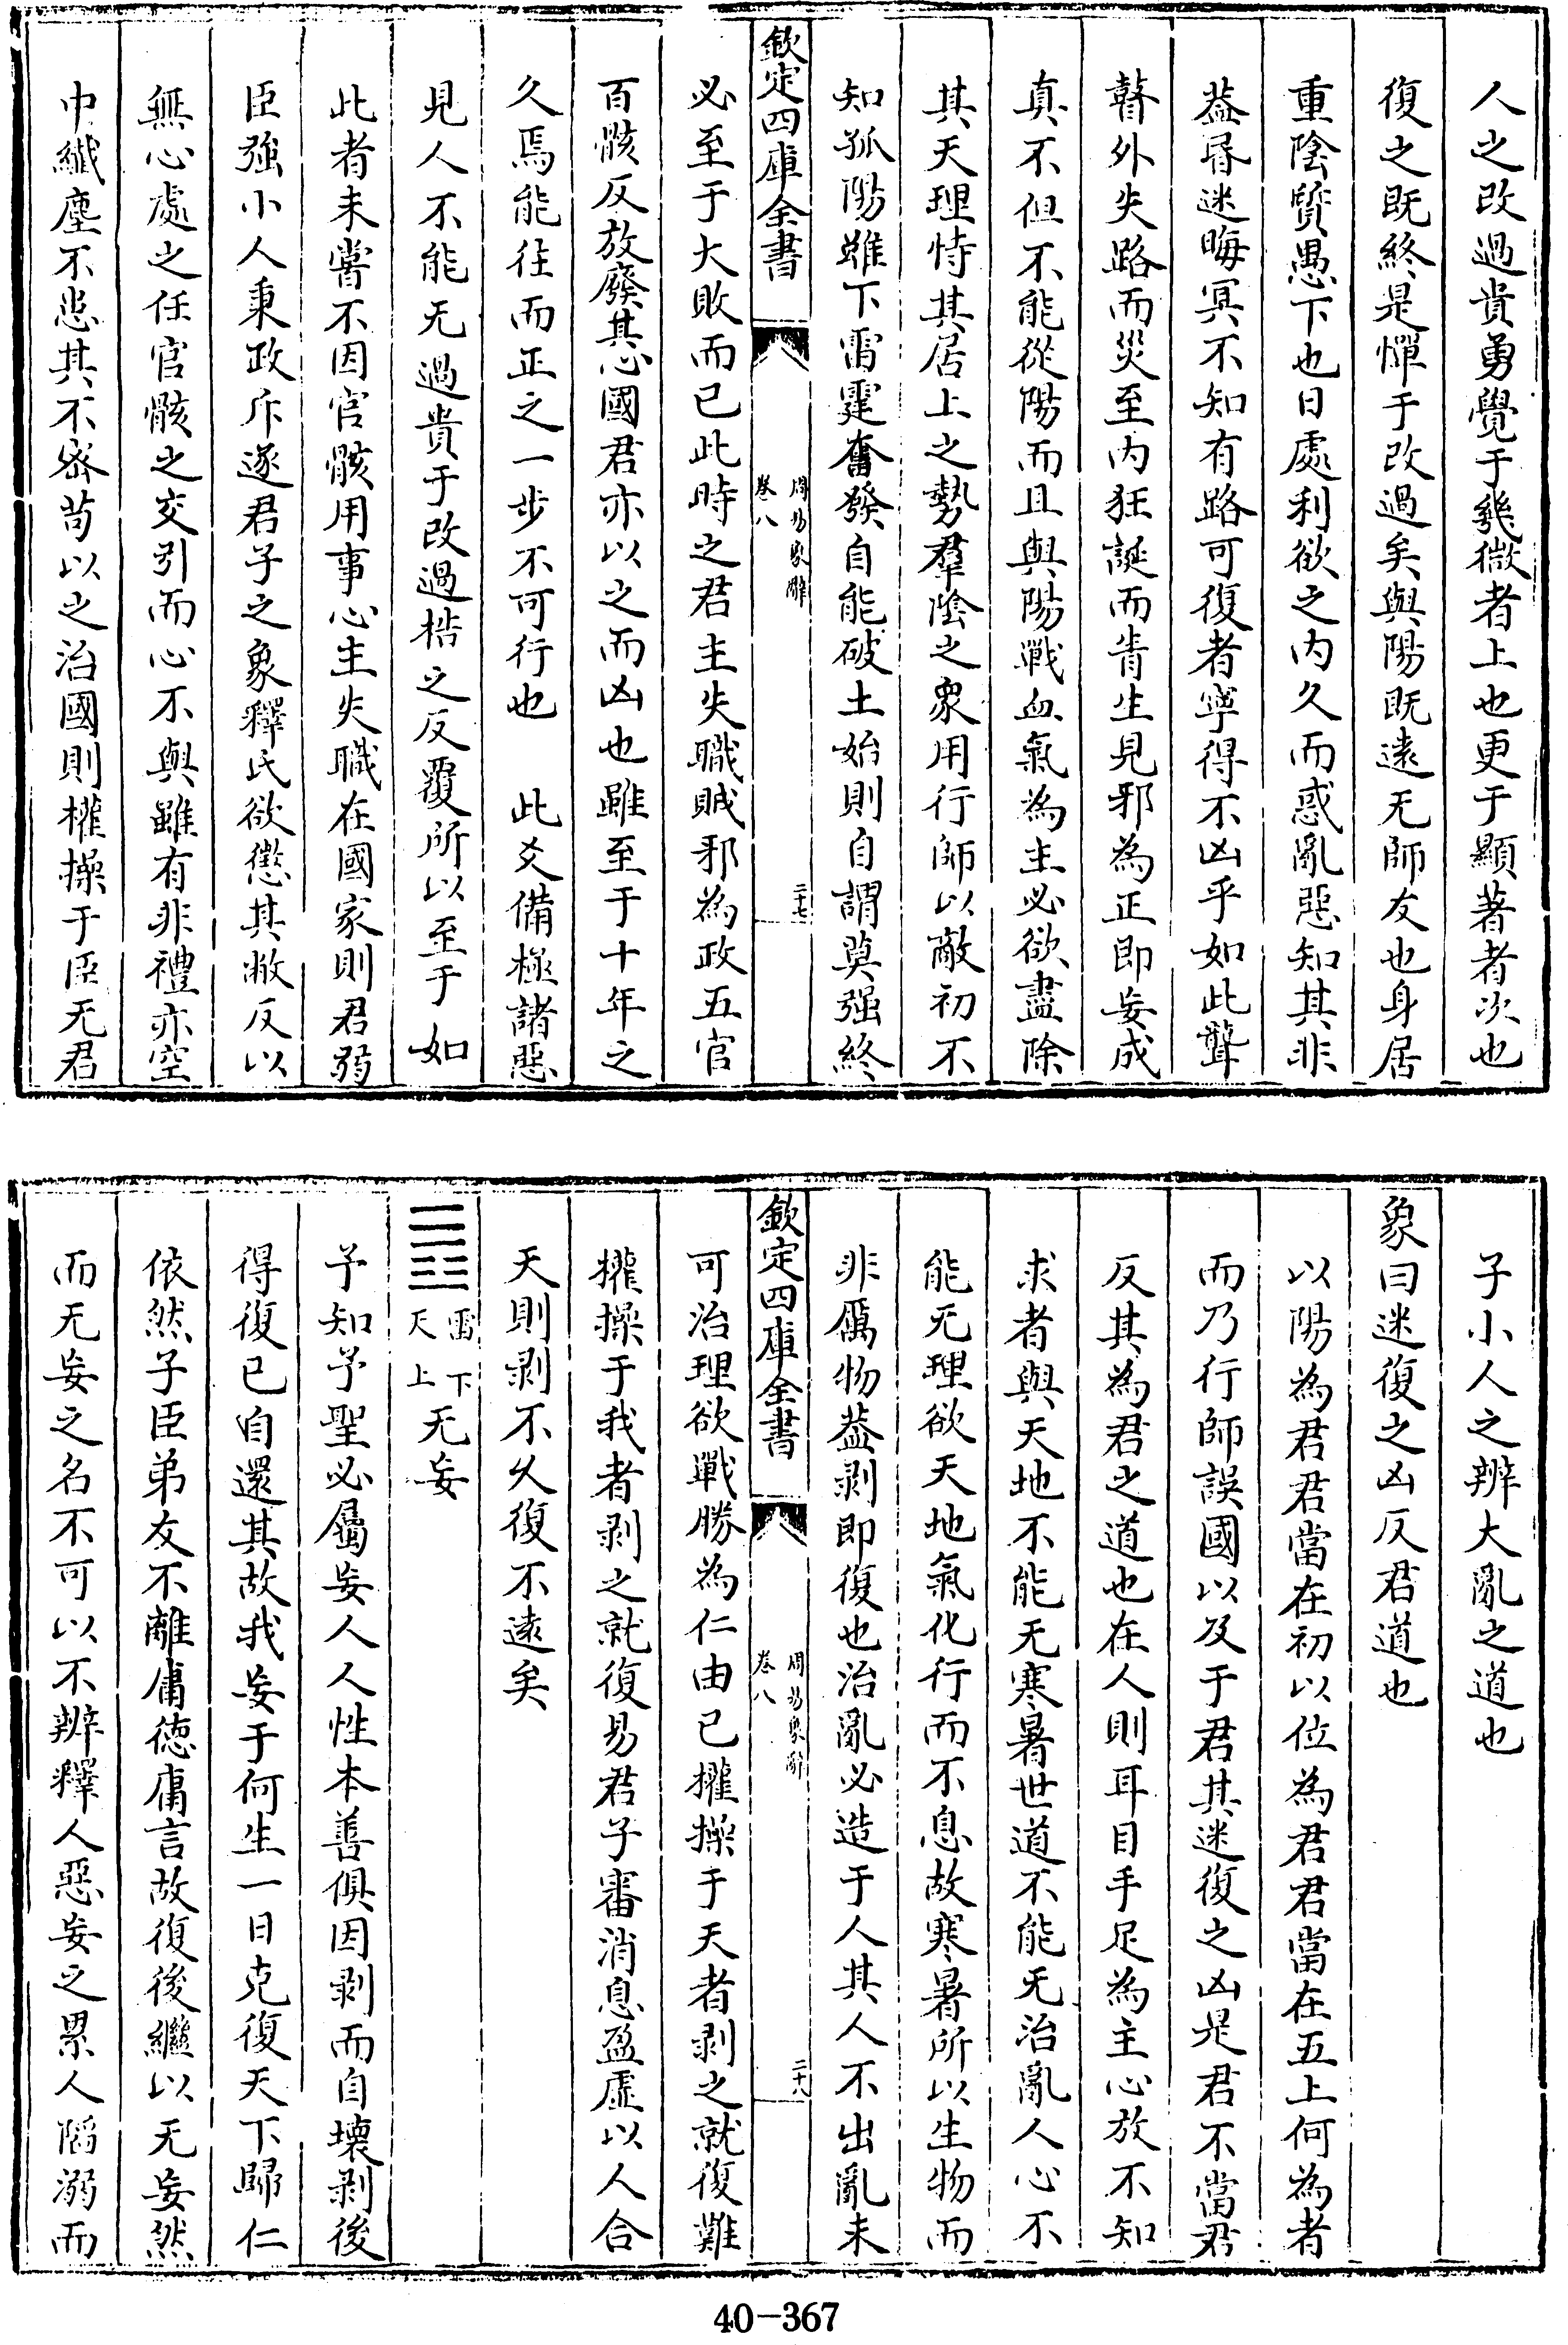 人之改過貴勇覺于幾微者上也更于顯著者次也
復之既終是憚于改過矣與陽既遠无師友也身居
重陰質愚下也日處利欲之内久而惑亂惡知其非
葢昬迷晦冥不知有路可復者寜得不凶乎如此聾
瞽外失路而災至内狂誕而眚生見邪為正即妄成
真不但不能從陽而且與陽戰血氣為主必欲盡除
其天理恃其居上之勢羣陰之衆用行師以敵初不
知孤陽雖下雷霆奮發自能破土始則自謂莫强終
欽定四庫全書
周易象辭
卷八
二十七
必至于大敗而已此時之君主失職賊邪為政五官
百骸反放廢其心國君亦以之而凶也雖至于十年之
久焉能往而正之一步不可行也　此爻備極諸惡
見人不能无過貴于改過梏之反覆所以至于如
此者未嘗不因官骸用事心主失職在國家則君弱
臣強小人秉政斥逐君子之象釋氏欲懲其敝反以
無心處之任官骸之交引而心不與雖有非禮亦空
中纎塵不患其不察苟以之治國則權操于臣无君
子小人之辨大亂之道也
象曰迷復之凶反君道也
以陽為君君當在初以位為君君當在五上何為者
而乃行師誤國以及于君其迷復之凶是君不當君
反其為君之道也在人則耳目手足為主心放不知
求者與天地不能无寒暑世道不能无治亂人心不
能无理欲天地氣化行而不息故寒暑所以生物而
非厲物葢剥即復也治亂必造于人其人不出亂未
欽定四庫全書
周易象辭
卷八
二十八
可治理欲戰勝為仁由已權操于天者剥之就復難
權操于我者剥之就復易君子審消息盈虚以人合
天則剥不久復不遠矣
雷下
天上
无妄
予知予聖必屬妄人人性本善俱因剥而自壞剥後
得復已自還其故我妄于何生一日克復天下歸仁
依然子臣弟友不離庸徳庸言故復後繼以无妄然
而无妄之名不可以不辨釋人惡妄之累人陷溺而
40-367